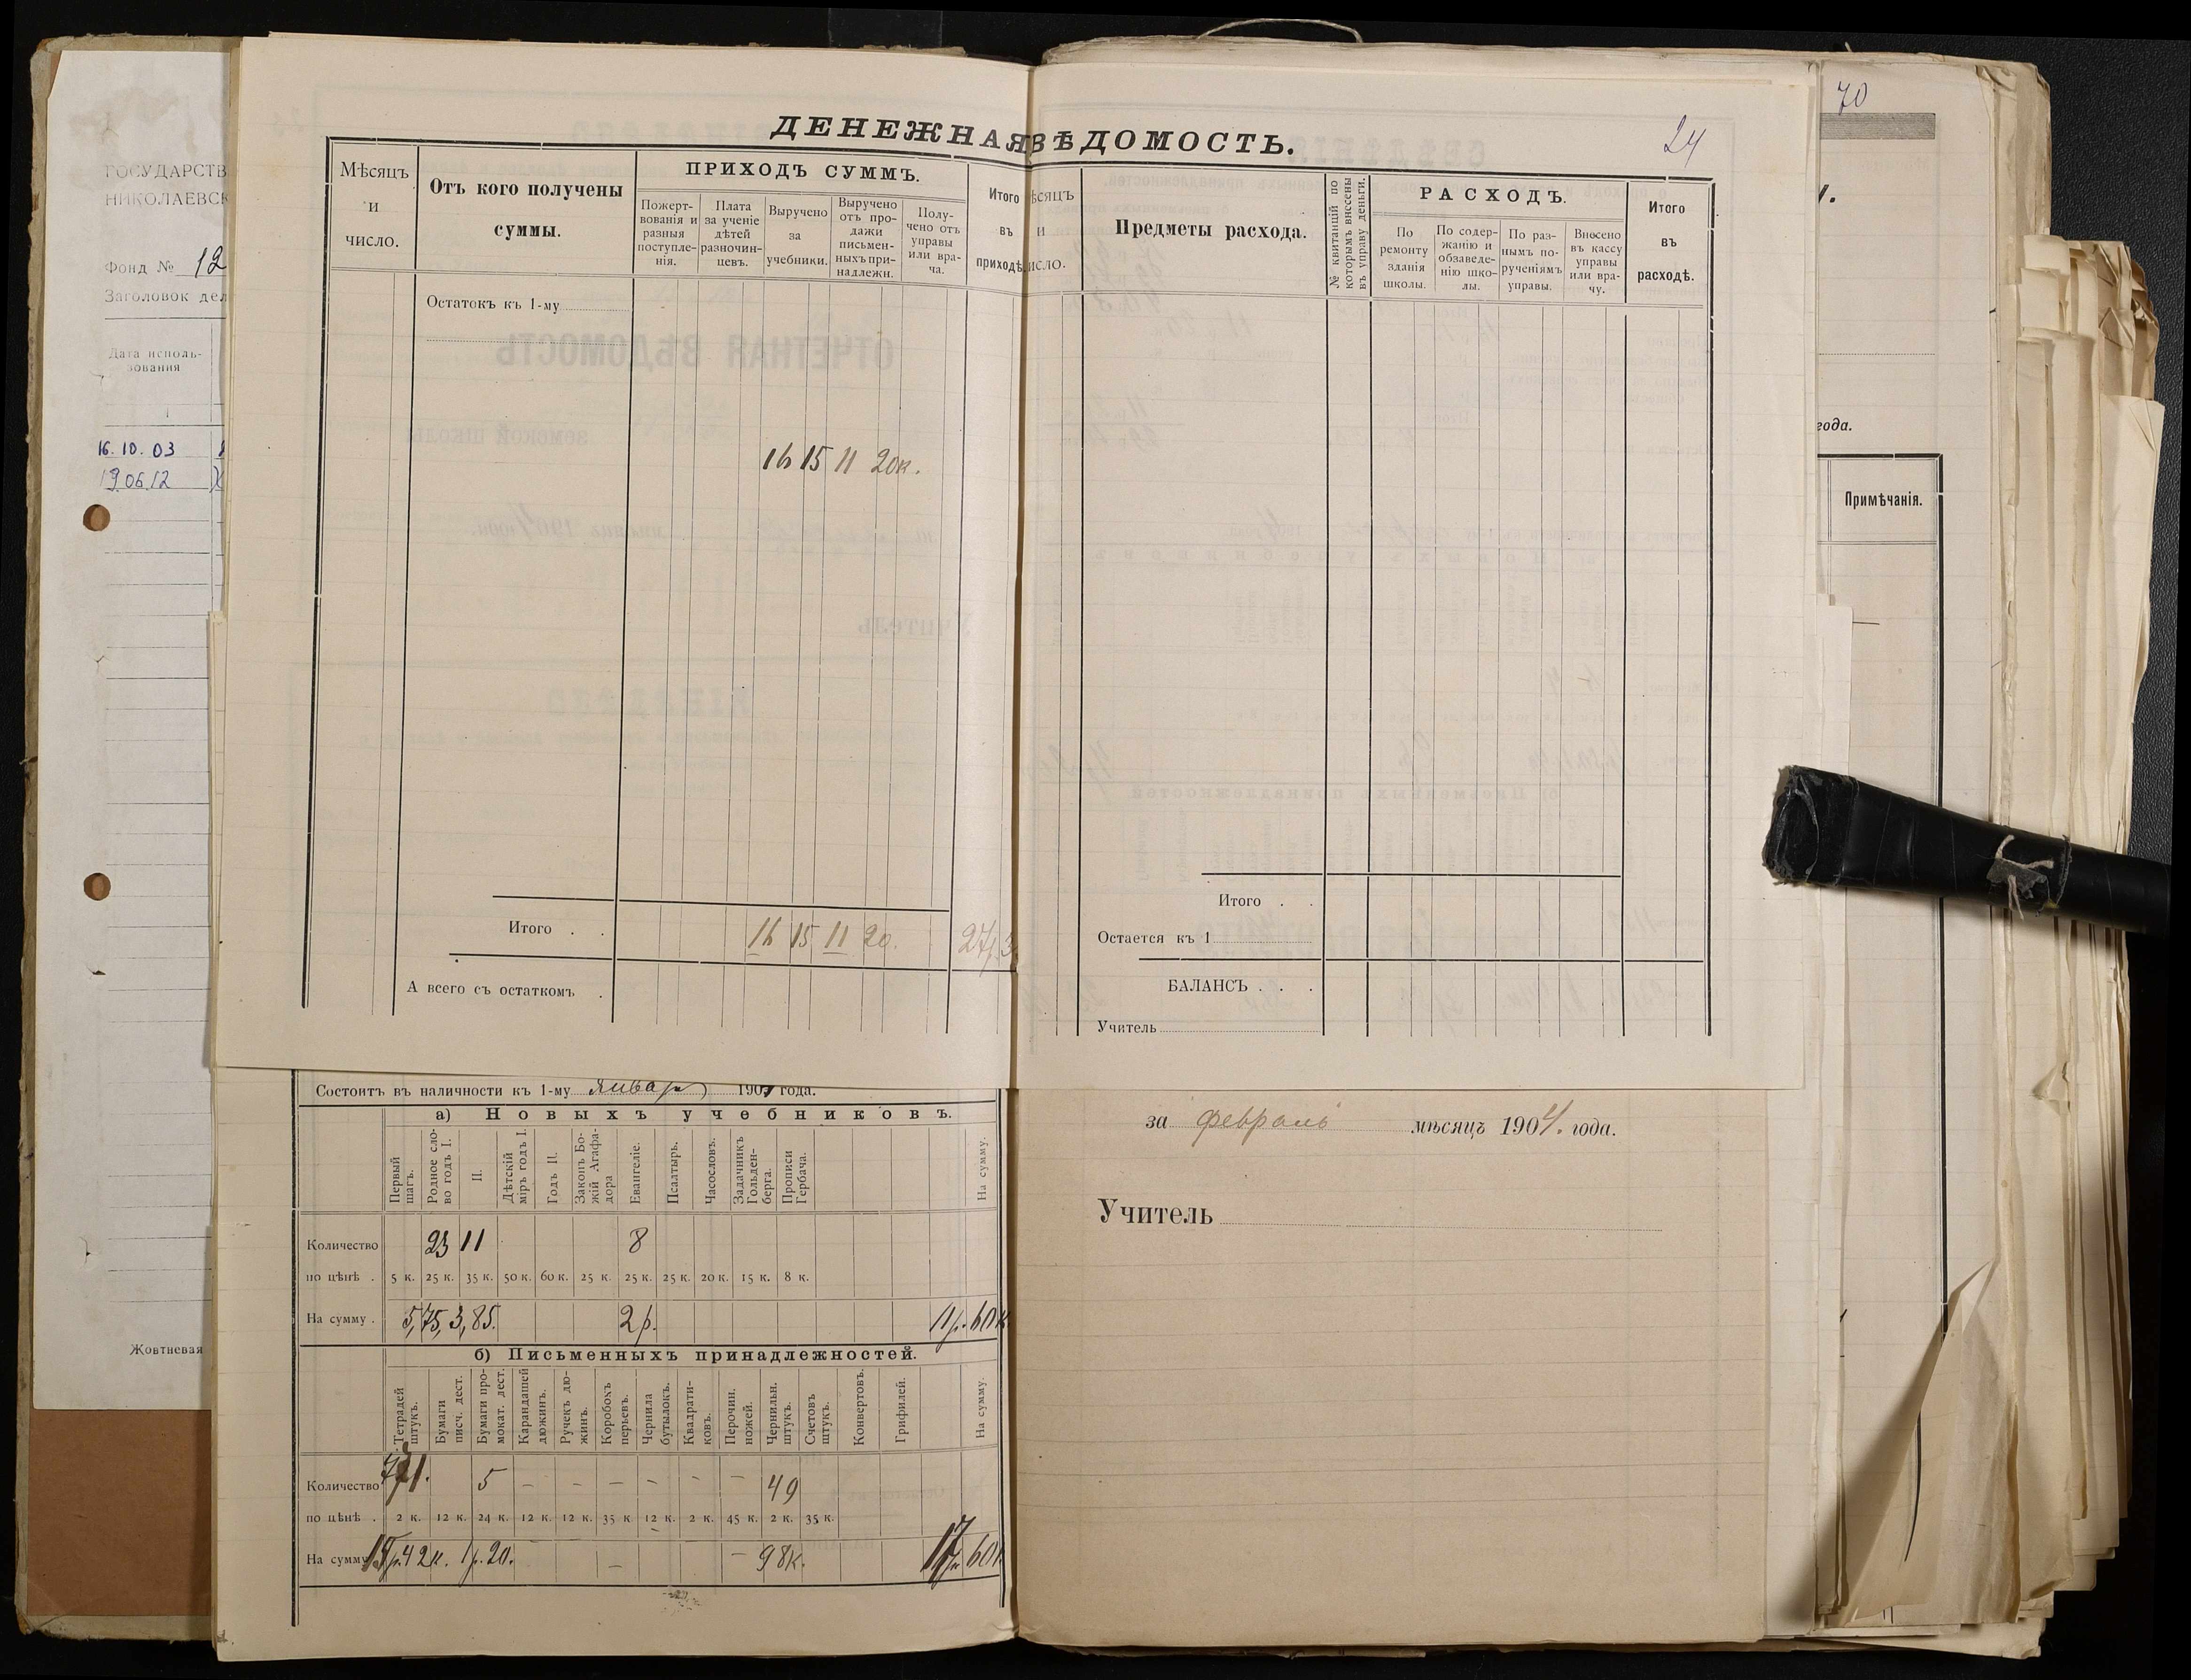 70
24
ГОСУДАРСТВ
НИКОЛАЕВСК
Фонд № 12
Заголовок дел
Дата исполь-
зования
1
16.10.03
19.06.12
Жовтневая
ДЕНЕЖНАЯ ВѢДОМОСТЬ.
Мѣсяцъ
и
число.
Отъ кого получены
суммы.
ПРИХОДЪ СУММЪ.
Пожерт-
вованія и
разныя
поступле-
нія.
Плата
за ученіе
дѣтей
разночин-
цевъ.
Выручено
за
учебники.
Выручено
отъ про-
дажи
письмен-
ныхъ при-
надлежн.
Полу-
чено отъ
управы
или вра-
ча.
Итого
въ
приходѣ.
Остатокъ къ 1-му
16 15 11 20к.
Итого . .
16 15 11 20.
27р. 3
А всего съ остаткомъ .
ѣсяцъ
и
исло.
Предметы расхода.
№ квитанцій по
которымъ внесены
въ управу деньги.
РАСХОДЪ.
По
ремонту
зданія
школы.
По содер-
жанію и
обзаведе-
нію шко-
лы.
По раз-
нымъ по-
рученіямъ
управы.
Внесено
въ кассу
управы
или вра-
чу.
Итого
въ
расходѣ.
Итого . .
Остается къ 1
БАЛАНСЪ . . .
Учитель
года.
Примѣчанія.
Состоитъ въ наличности къ 1-му январю 1904 года.
а) Новыхъ учебниковъ.
Первый
шагъ.
Родное сло-
во годъ I.
II.
Дѣтскій
міръ годъ I.
Годъ II.
Законъ Бо-
жій Агафа-
дора
Евангеліе.
Псалтырь.
Часословъ.
Задачникъ
Гольден-
берга.
Прописи
Гербача.
На сумму.
Количество 23 11 8
по цѣнѣ . 5 к. 25 к. 35 к. 50 к. 60 к. 25 к. 25 к. 25 к. 20 к. 15 к. 8 к.
На сумму . 5,75, 3,85. 2р. 11р. 60к
б) Письменныхъ принадлежностей.
Тетрадей
штукъ.
Бумаги
писч. дест.
Бумаги про-
мокат. дест.
Карандашей
дюжинъ.
Ручекъ дю-
жинъ.
Коробокъ
перьевъ.
Чернила
бутылокъ.
Квадрати-
ковъ.
Перочин.
ножей.
Чернильн.
штукъ.
Счетовъ
штукъ.
Конвертовъ.
Грифилей.
На сумму.
Количество 771. 5 – – – – – – 49
по цѣнѣ . 2 к. 12 к. 24 к. 12 к. 12 к. 35 к 12 к. 2 к. 45 к. 2 к. 35 к.
На сумму 15р.42к. 1р.20. – – 98к. 17р. 60к
за февраль мѣсяцъ 1904. года.
Учитель